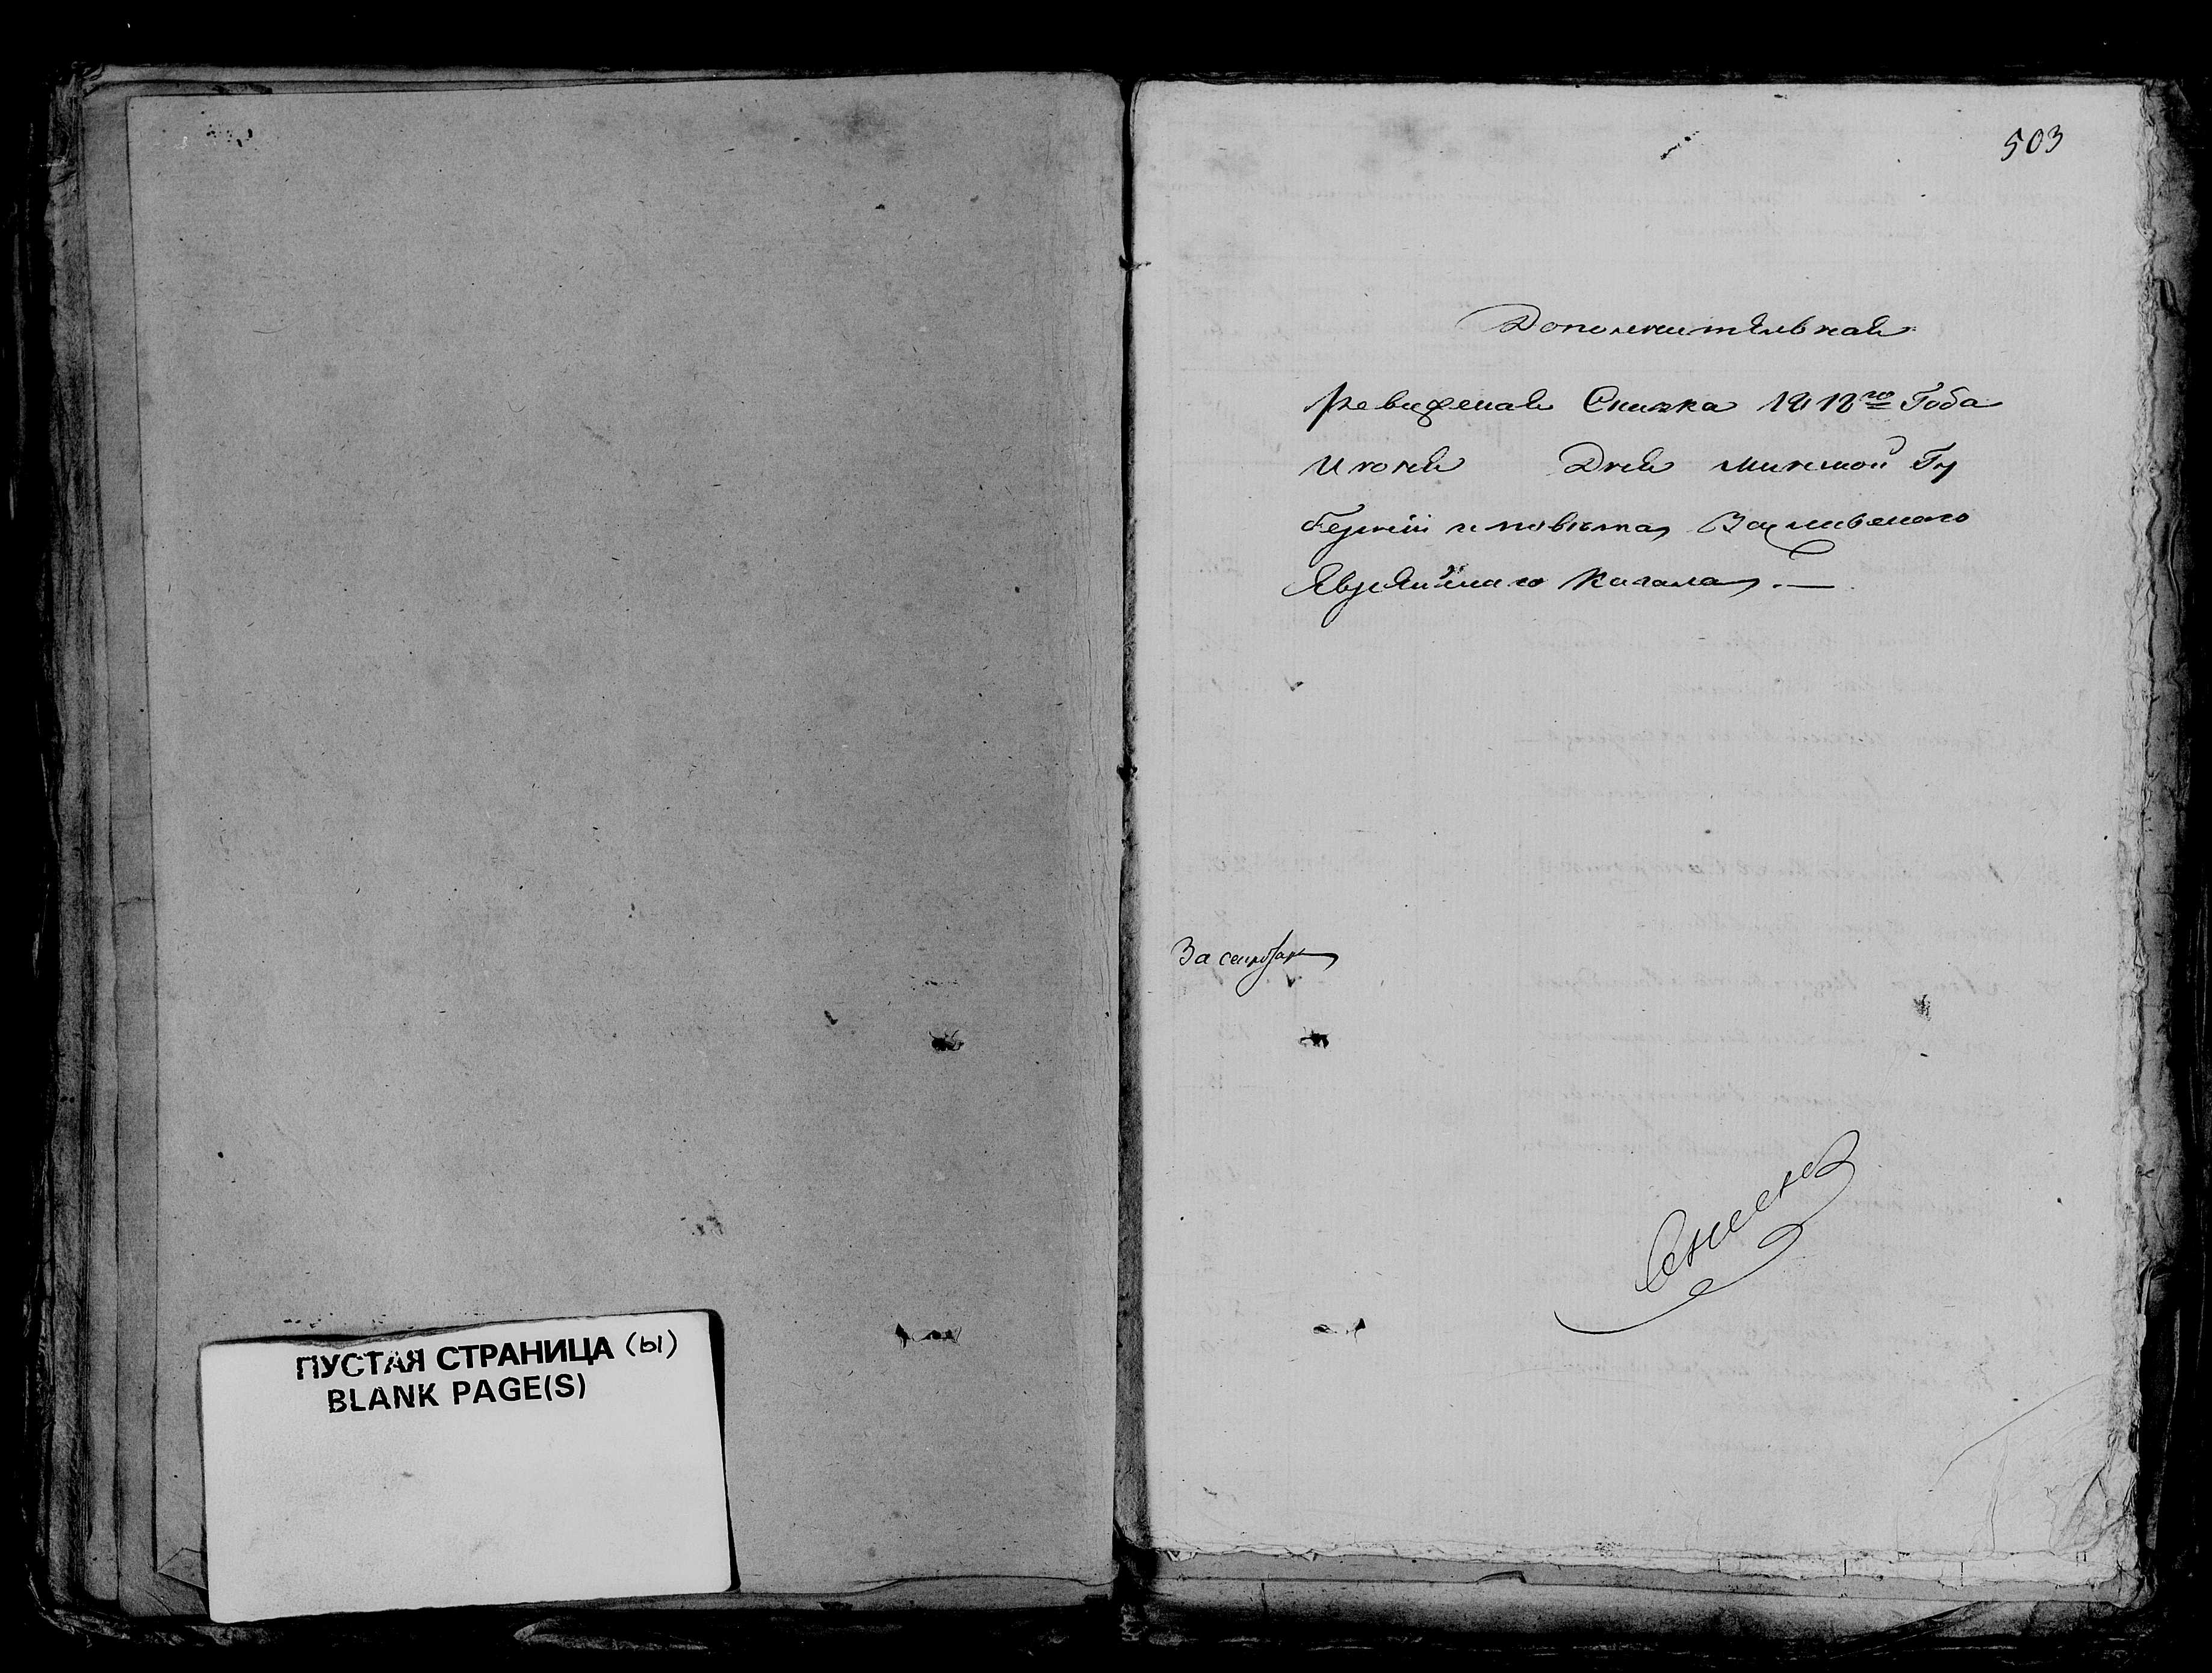 ПУСТАЯ СТРАНИЦА (Ы)
BLANK PAGE(S)
503
Дополнительная
Ревизская Сказка 1818го Года
Июня Дня Минской Гу
берний и повета,
Еврейскаго Кагала. —
За секретаря